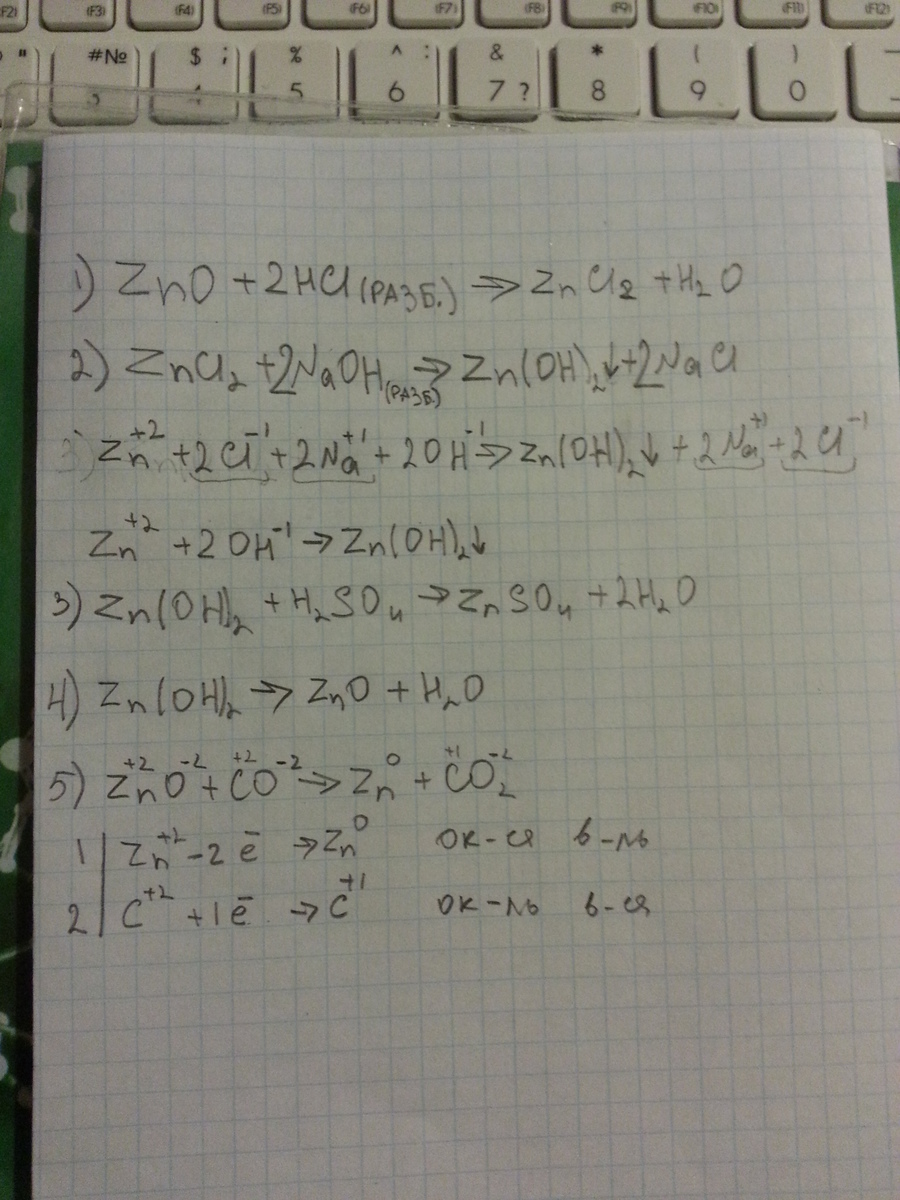 (F2) (F3) (F4) (F5) (F6) (F7) (F8) (F9) (F10) (F11) (F12)
" #№ $ ; % ^ : & * ( )
5 6 7 ? 8 9 0
1) ZnO + 2HCl (РАЗБ.) → ZnCl₂ + H₂O
2) ZnCl₂ + 2NaOH (РАЗБ.) → Zn(OH)₂↓ + 2NaCl
3) Zn⁺² + 2Cl⁻¹ + 2Na⁺¹ + 2OH⁻¹ → Zn(OH)₂↓ + 2Na⁺¹ + 2Cl⁻¹
Zn⁺² + 2OH⁻¹ → Zn(OH)₂↓
3) Zn(OH)₂ + H₂SO₄ → ZnSO₄ + 2H₂O
4) Zn(OH)₂ → ZnO + H₂O
5) Zn⁺²O⁻² + C⁺²O⁻² → Zn⁰ + C⁺¹O₂⁻²
1 | Zn⁺² - 2ē → Zn⁰ ок-ся в-ль
2 | C⁺² + 1ē → C⁺¹ ок-ль в-ся